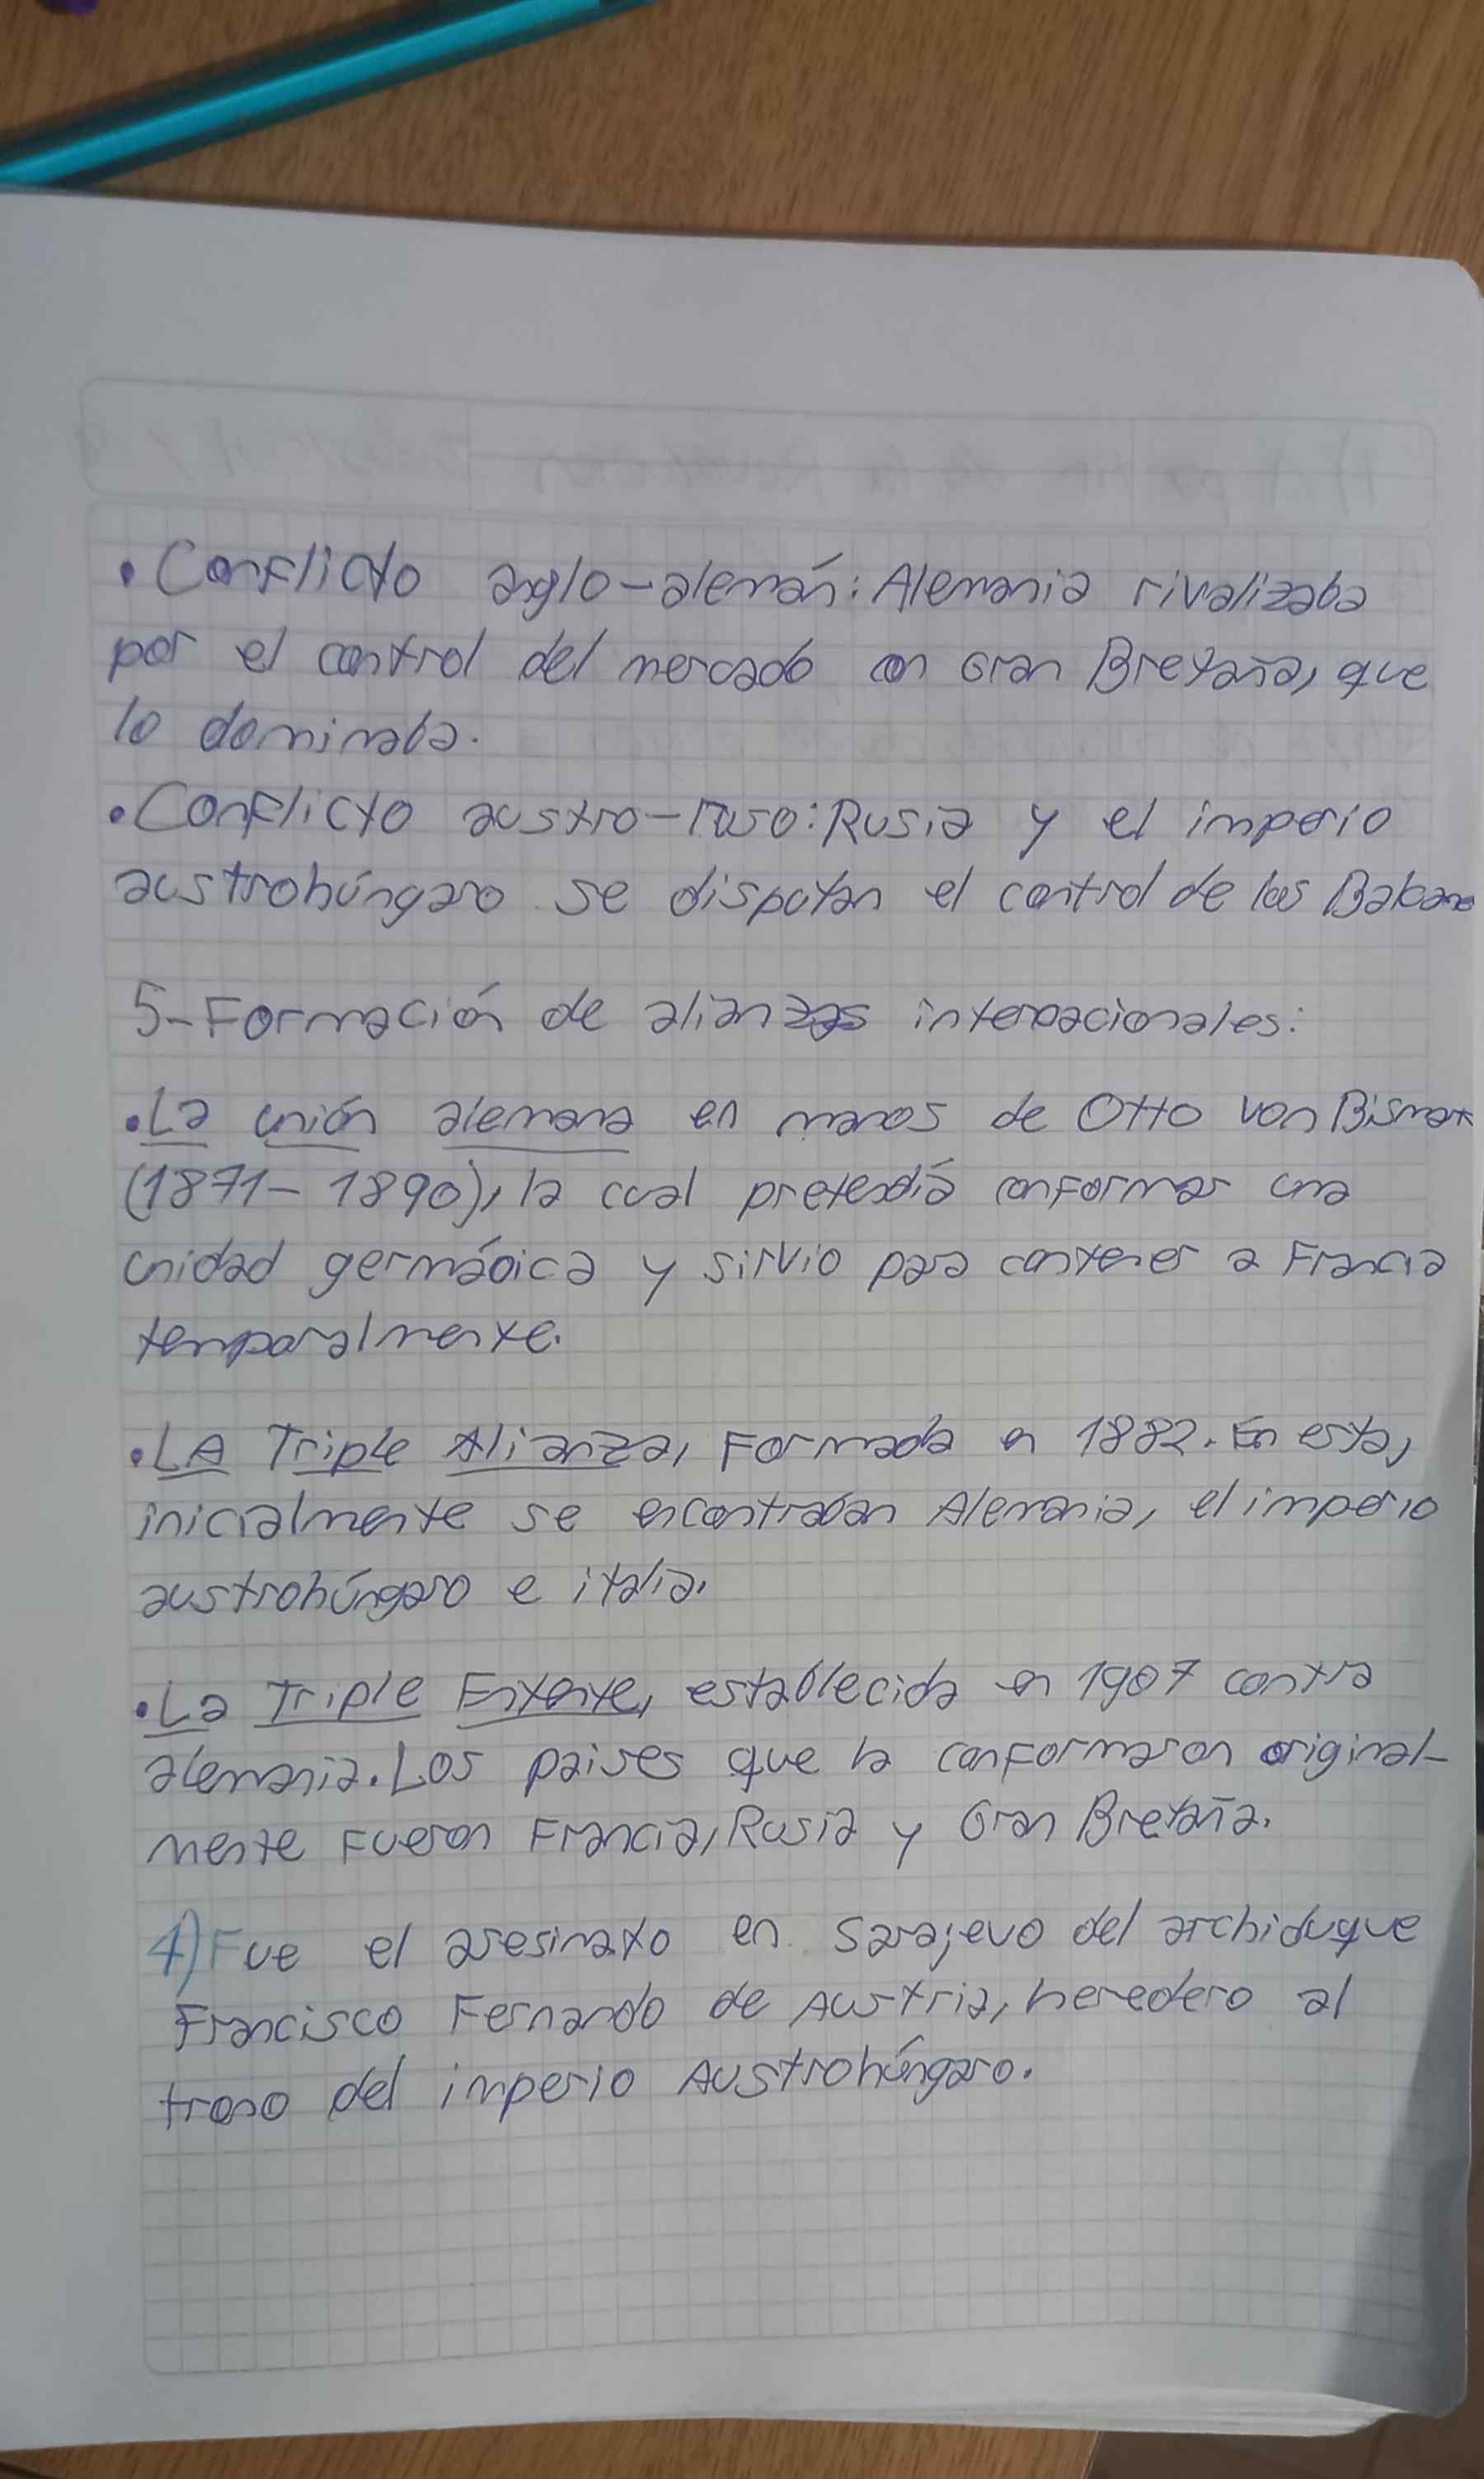 • Conflicto anglo-alemán: Alemania rivalizaba
por el control del mercado con Gran Bretaña, que
lo dominaba.
• Conflicto austro-ruso: Rusia y el imperio
austrohúngaro se disputan el control de los Balcanes
5-Formación de alianzas internacionales:
• La unión alemana en manos de Otto von Bismark
(1871- 1890), la cual pretendiá conformar una
unidad germánica y sirvio para contener a Francia
temporalmente.
• LA Triple Alianza, Formada en 1882. En esta,
inicialmente se encontraban Alemania, el imperio
austrohúngaro e italia.
• La Triple Entente, establecida en 1907 contra
alemania. Los paises que la conformaron original-
mente Fueron Francia, Rusia y Gran Bretaña.
4) Fue el asesinato en Sarajevo del archiduque
Francisco Fernando de Austria, heredero al
trono del imperio Austrohúngaro.